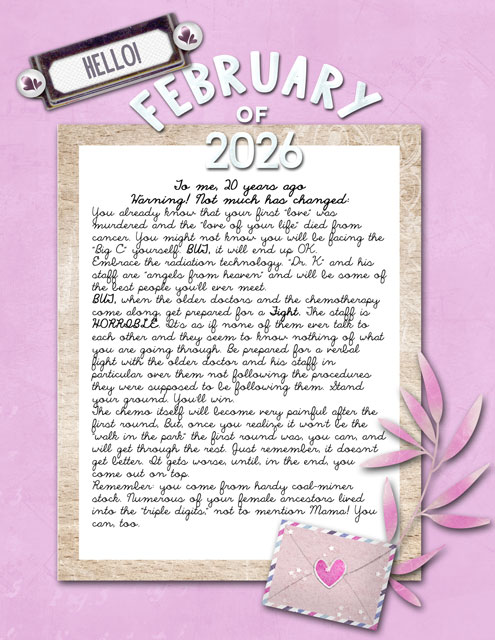 HELLO!
FEBRUARY
OF
2026
To me, 20 years ago
Warning! Not much has changed:
You already know that your first "love" was
murdered and the "love of your life" died from
cancer. You might not know you will be facing the
"Big C" yourself. BUT, it will end up OK.
Embrace the radiation technology. "Dr. K" and his
staff are "angels from heaven" and will be some of
the best people you'll ever meet.
BUT, when the older doctors and the chemotherapy
come along, get prepared for a Fight. The staff is
HORROBLE. It's as if none of them ever talk to
each other and they seem to know nothing of what
you are going through. Be prepared for a verbal
fight with the older doctor and his staff in
particular over them not following the procedures
they were supposed to be following them. Stand
your ground. You'll win.
The chemo itself will become very painful after the
first round. But, once you realize it won't be the
"walk in the park" the first round was, you can, and
will get through the rest. Just remember, it doesn't
get better. It gets worse, until, in the end, you
come out on top.
Remember: you come from hardy coal-miner
stock. Numerous of your female ancestors lived
into the "triple digits," not to mention Mama! You
can, too.